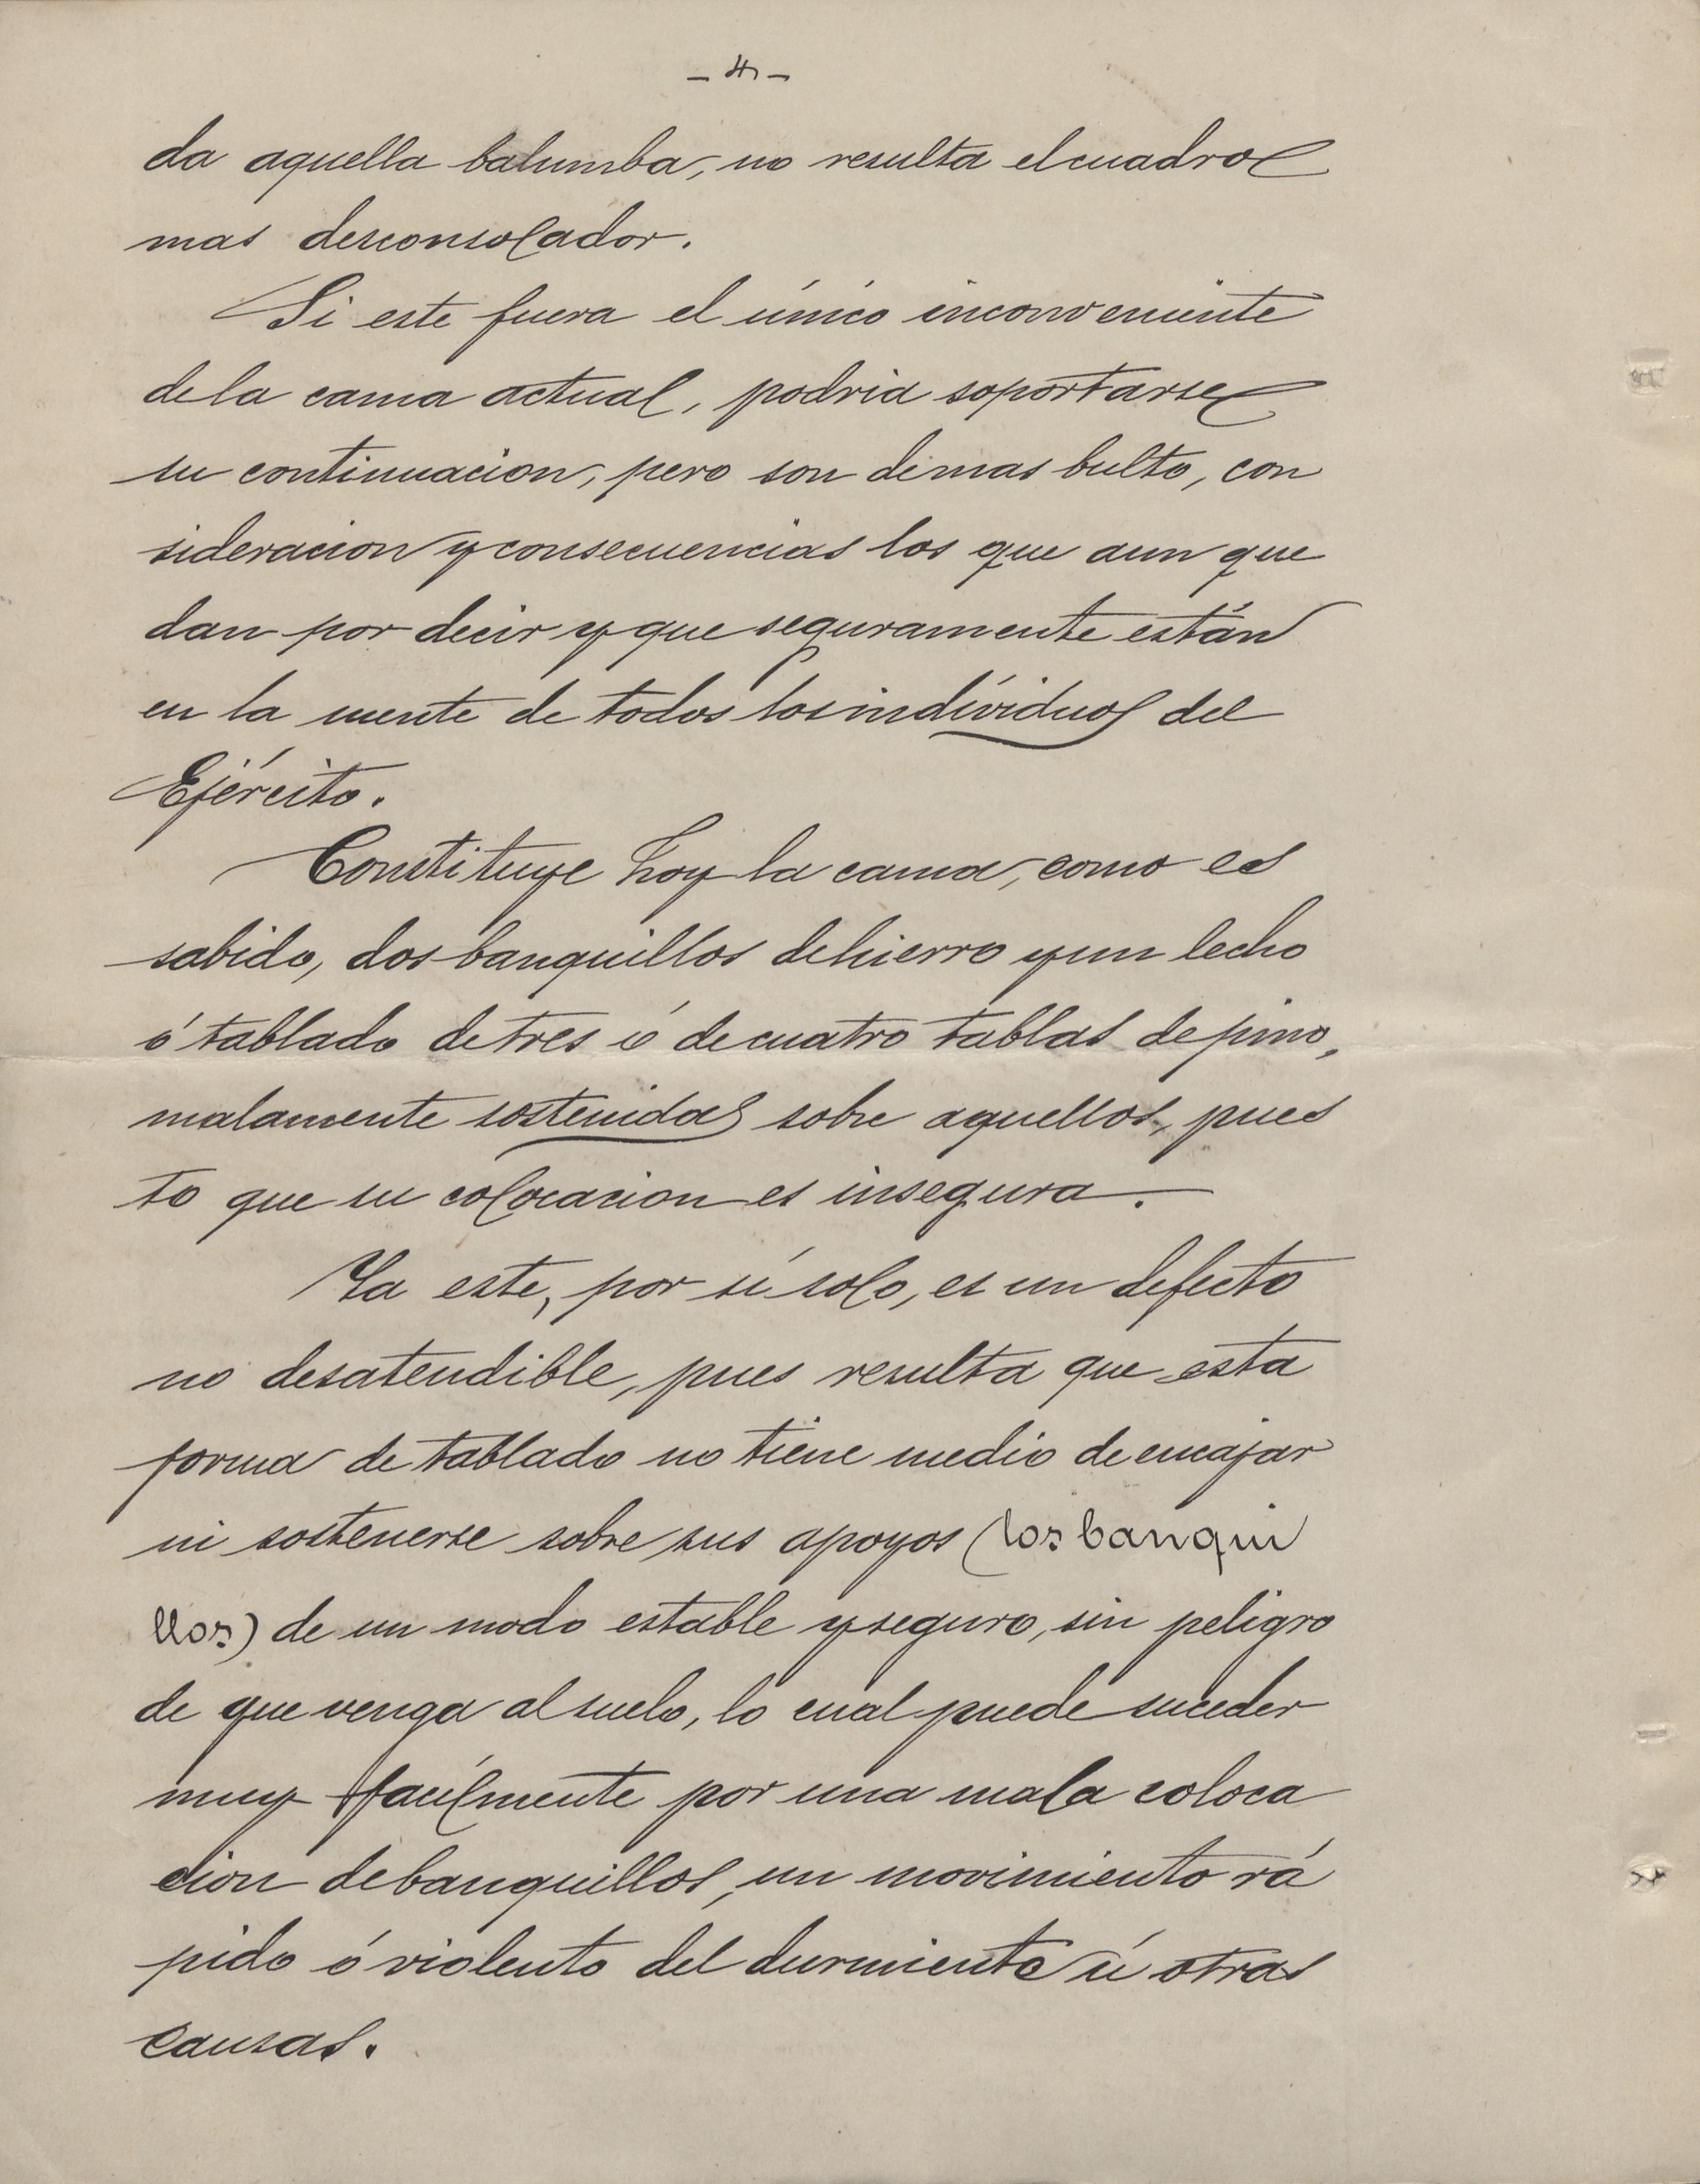 - 4 -
da aquella balumba, no resulta el cuadro
mas desconsolador.
Si este fuera el único inconveniente
de la cama actual, podria soportarse
su continuacion, pero son de mas bulto, con
sideracion y consecuencias los que aun que
dan por decir y que seguramente están
en la mente de todos los individuos del
Ejército.
Constituye hoy la cama, como es
sabido, dos banquillos de hierro y un lecho
ó tablado de tres ó de cuatro tablas de pino,
malamente sostenidas sobre aquellos, pues
to que su colocacion es insegura.
Ya este, por sí solo, es un defecto
no desatendible, pues resulta que esta
forma de tablado no tiene medio de encajar
ni sostenerse sobre sus apoyos (los banqui
llos) de un modo estable y seguro, sin peligro
de que venga al suelo, lo cual puede suceder
muy facílmente por una mala coloca
cion de banquillos, un movimiento rá
pido ó violento del durmiente ú otras
causas.